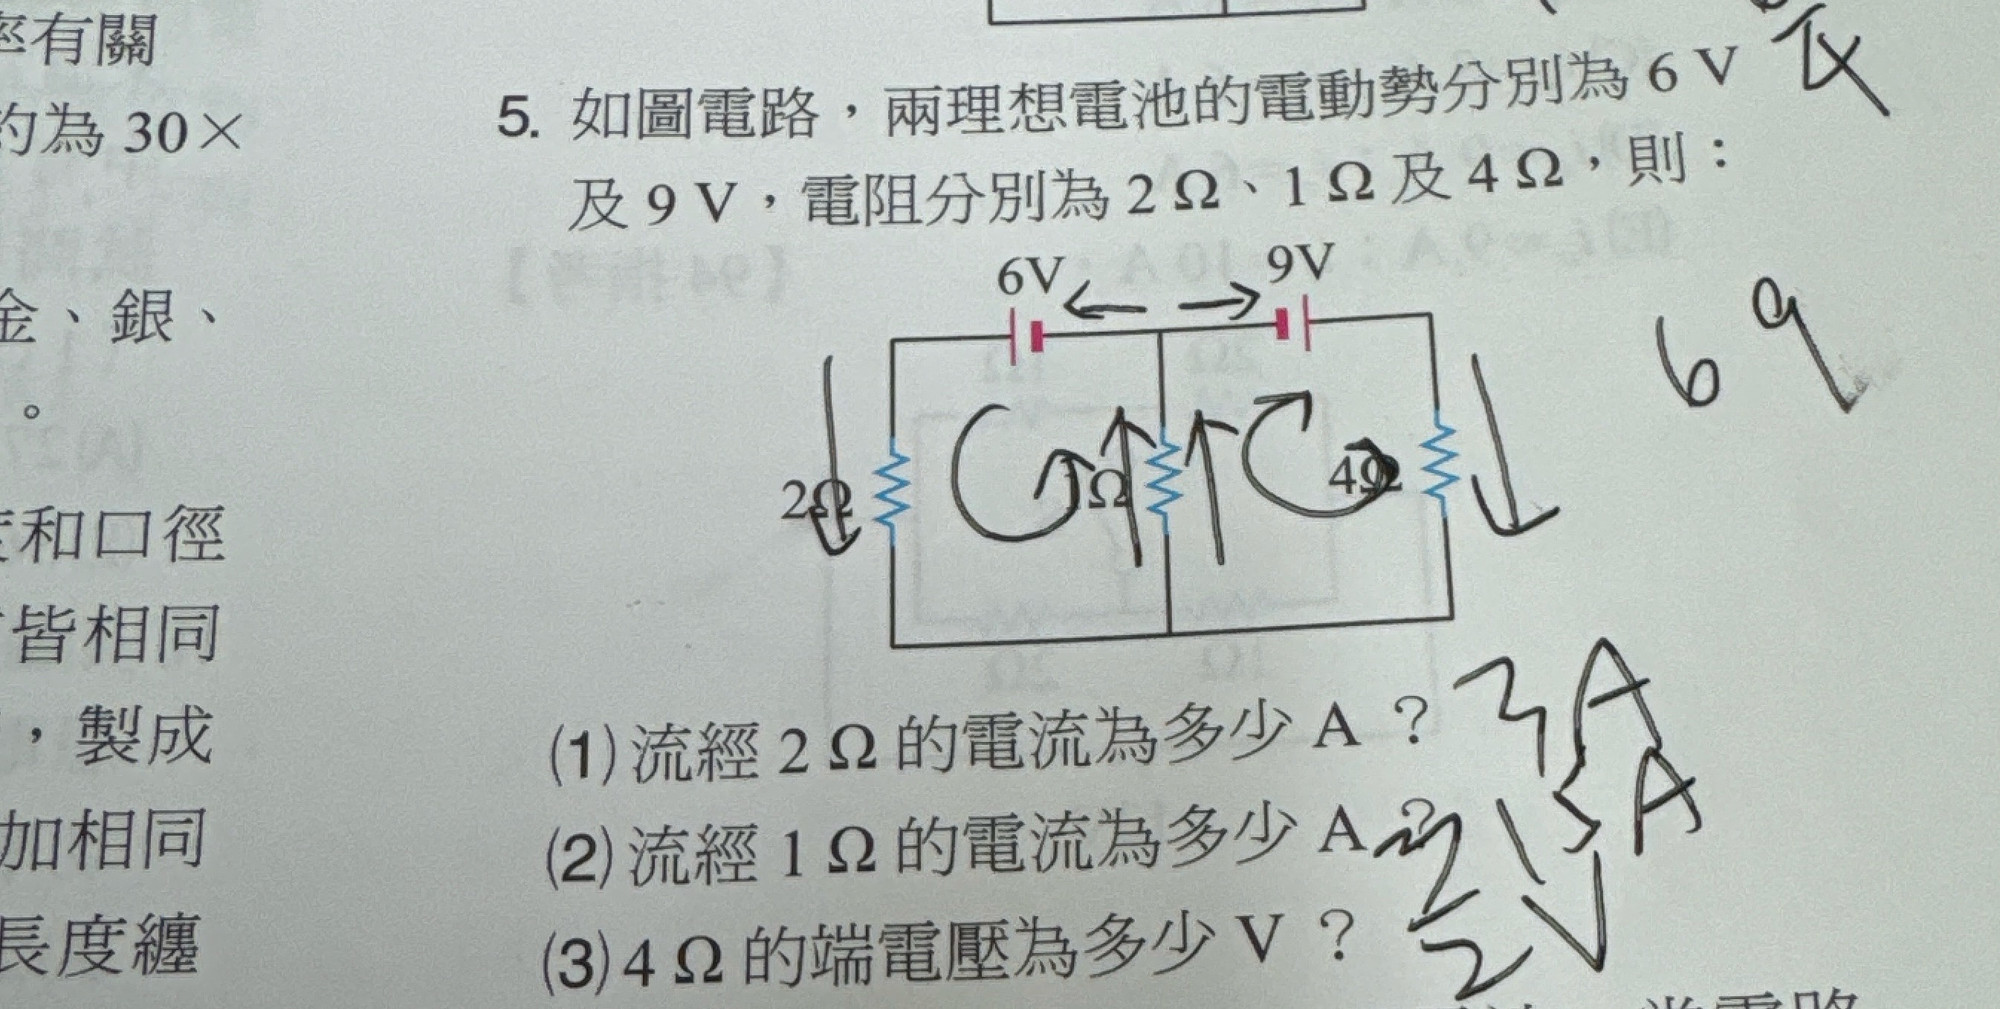 率有關
約為 30×
金、銀、
。
度和口徑
皆相同
，製成
加相同
長度纏
5. 如圖電路，兩理想電池的電動勢分別為 6 V
及 9 V，電阻分別為 2 Ω、1 Ω 及 4 Ω，則：
6V 9V
6 9
2Ω 1Ω 4Ω
(1) 流經 2 Ω 的電流為多少 A ？
A
(2) 流經 1 Ω 的電流為多少 A ？
A
(3) 4 Ω 的端電壓為多少 V ？